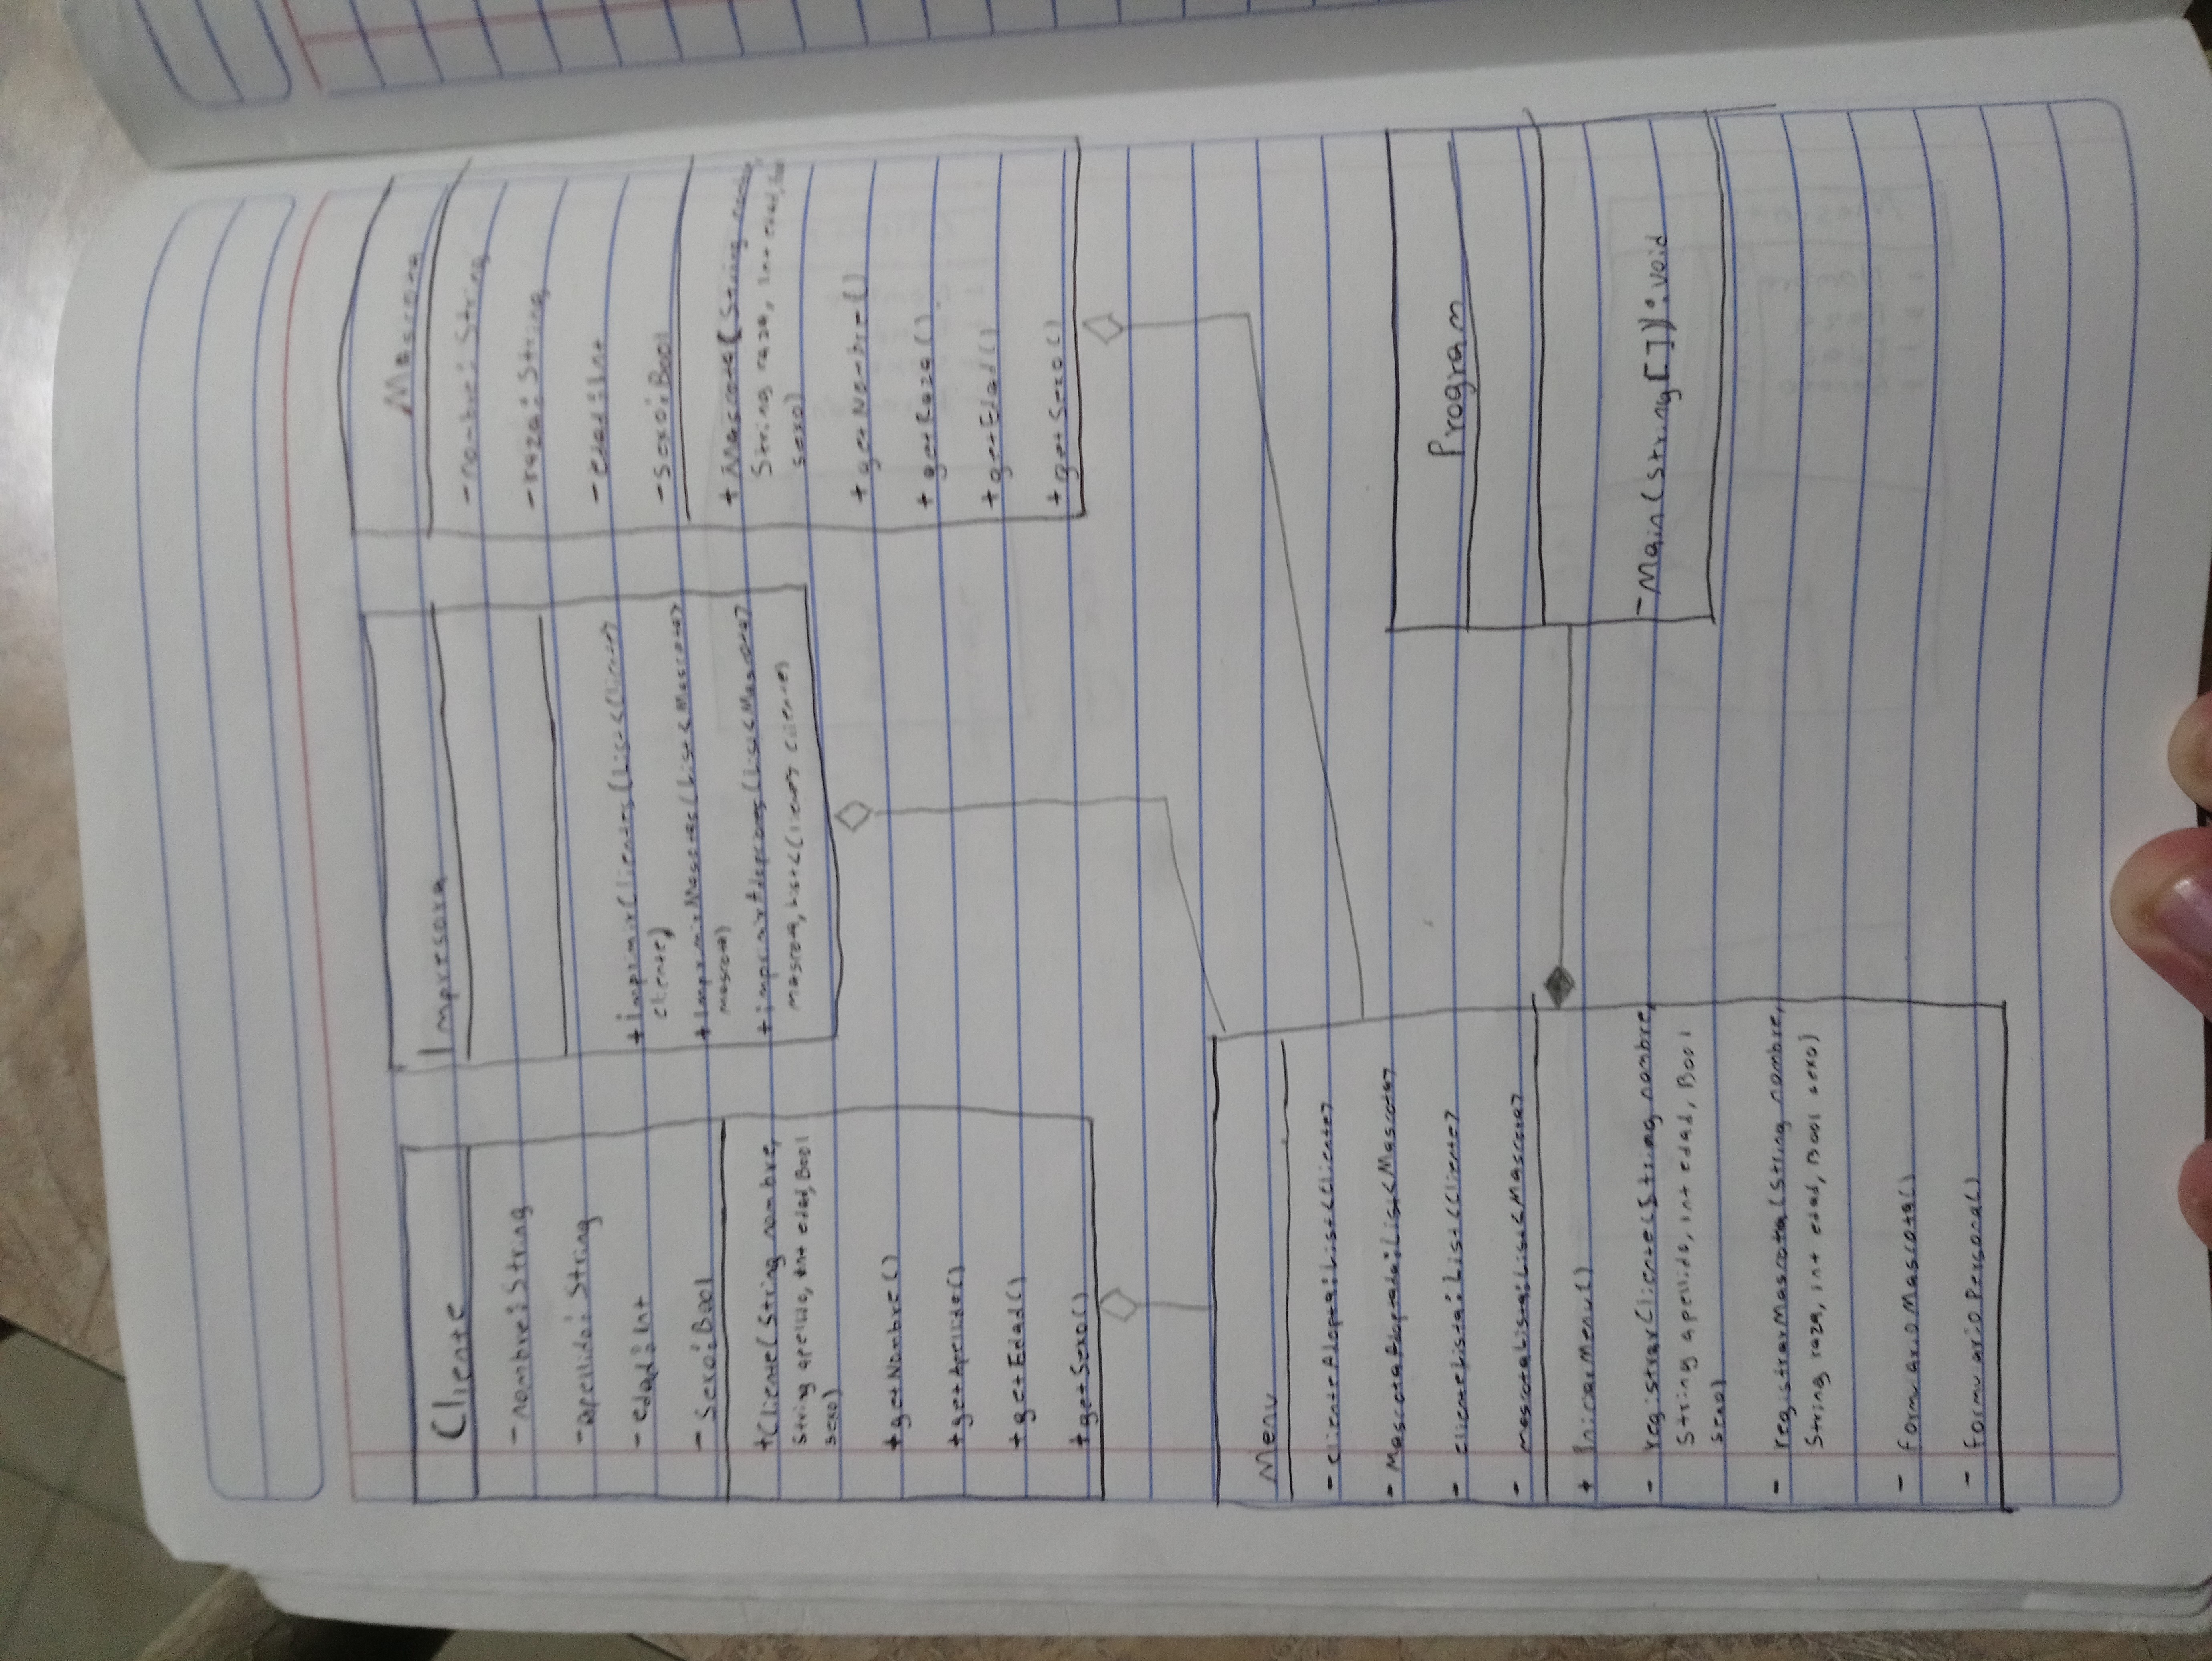 Cliente
- nombre: String
- apellido: String
- edad: int
- Sexo: Bool
+ Cliente(String nombre,
String apellido, int edad, Bool
sexo)
+ getNombre()
+ getApellido()
+ getEdad()
+ getSexo()
Impresora
+ imprimirClientes(List<Cliente>
cliente)
+ imprimirMascotas(List<Mascota>
mascota)
+ imprimirAdopciones(List<Mascota>
mascota, List<Cliente> cliente)
Mascota
- nombre: String
- raza: String
- edad: int
- Sexo: Bool
+ Mascota(String nombre,
String raza, int edad,
sexo)
+ getNombre()
+ getRaza()
+ getEdad()
+ getSexo()
Menu
- clienteAdopta: List<Cliente>
- MascotaAdoptada: List<Mascota>
- clienteLista: List<Cliente>
- mascotaLista: List<Mascota>
+ IniciarMenu()
- registrarCliente(String nombre,
String apellido, int edad, Bool
sexo)
- registrarMascota(String nombre,
String raza, int edad, Bool sexo)
- formularioMascota()
- formularioPersona()
Program
- Main(String[]): void